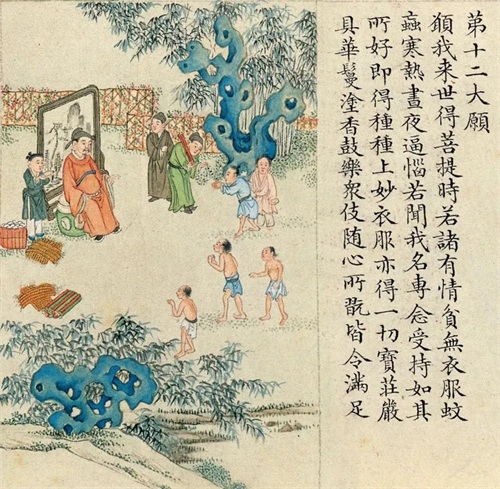 第十二大願
願我来世得菩提時若諸有情貧無衣服蚊
蝱寒熱晝夜逼惱若聞我名專念受持如其
所好即得種種上妙衣服亦得一切寶莊嚴
具華鬘塗香鼓樂衆伎隨心所翫皆令滿足